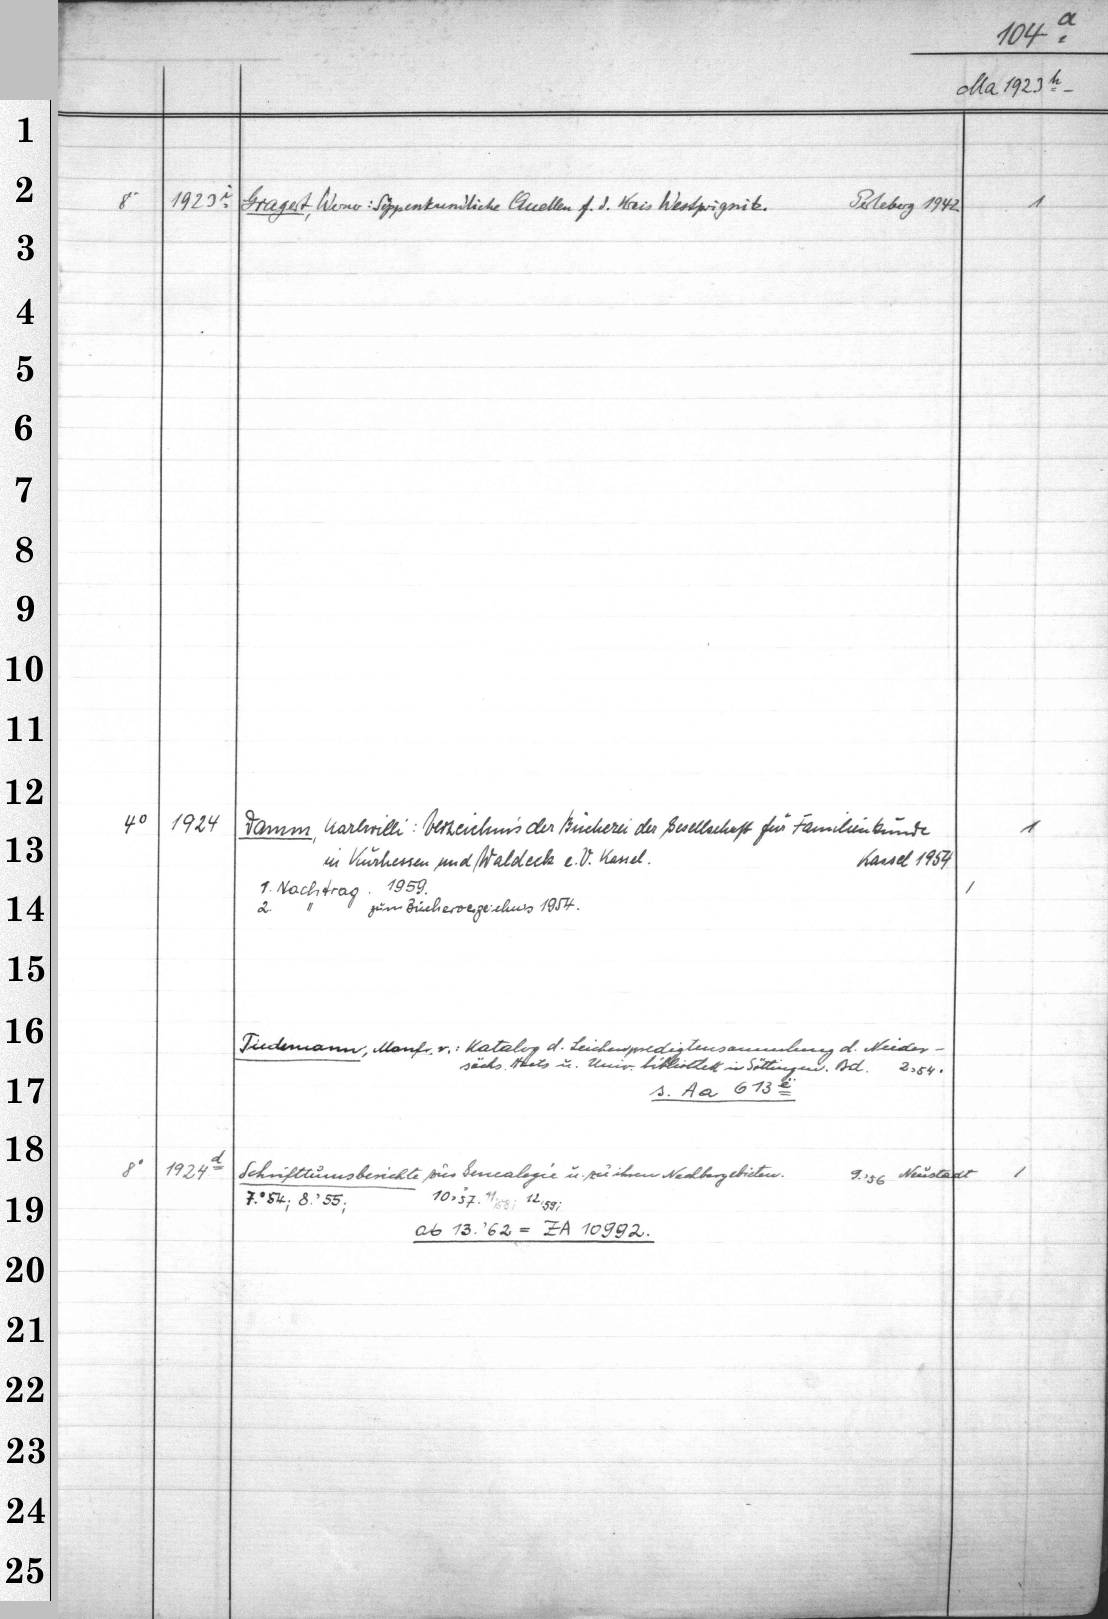 104 a
Ma 1923 h
1
2
8° 1923 i Gragert, Werner: Sippenkundliche Quellen f. d. Kreis Westprignitz. Perleberg 1942 1
3
4
5
6
7
8
9
10
11
12
4° 1924 Damm, Karlwilli: Verzeichnis der Bücherei der Gesellschaft für Familienkunde 1
13
in Kurhessen und Waldeck e. V. Kassel. Kassel 1954
1. Nachtrag. 1959. 1
14
2. " zum Bücherverzeichnis 1954.
15
16
Tiedemann, Manfr. v.: Katalog d. Leichenpredigtensammlung d. Nieder-
sächs. Staats u. Univ. bibliothek in Göttingen. Bd. 2.54.
17
s. Aa 613 e
18
8° 1924 d Schrifttumsberichte zur Genealogie u. zu ihren Nachbargebieten. 9.'56 Neustadt 1
19
7.'54; 8.'55; 10.'57. 11.'58; 12.'59;
ab 13.'62 = ZA 10992.
20
21
22
23
24
25